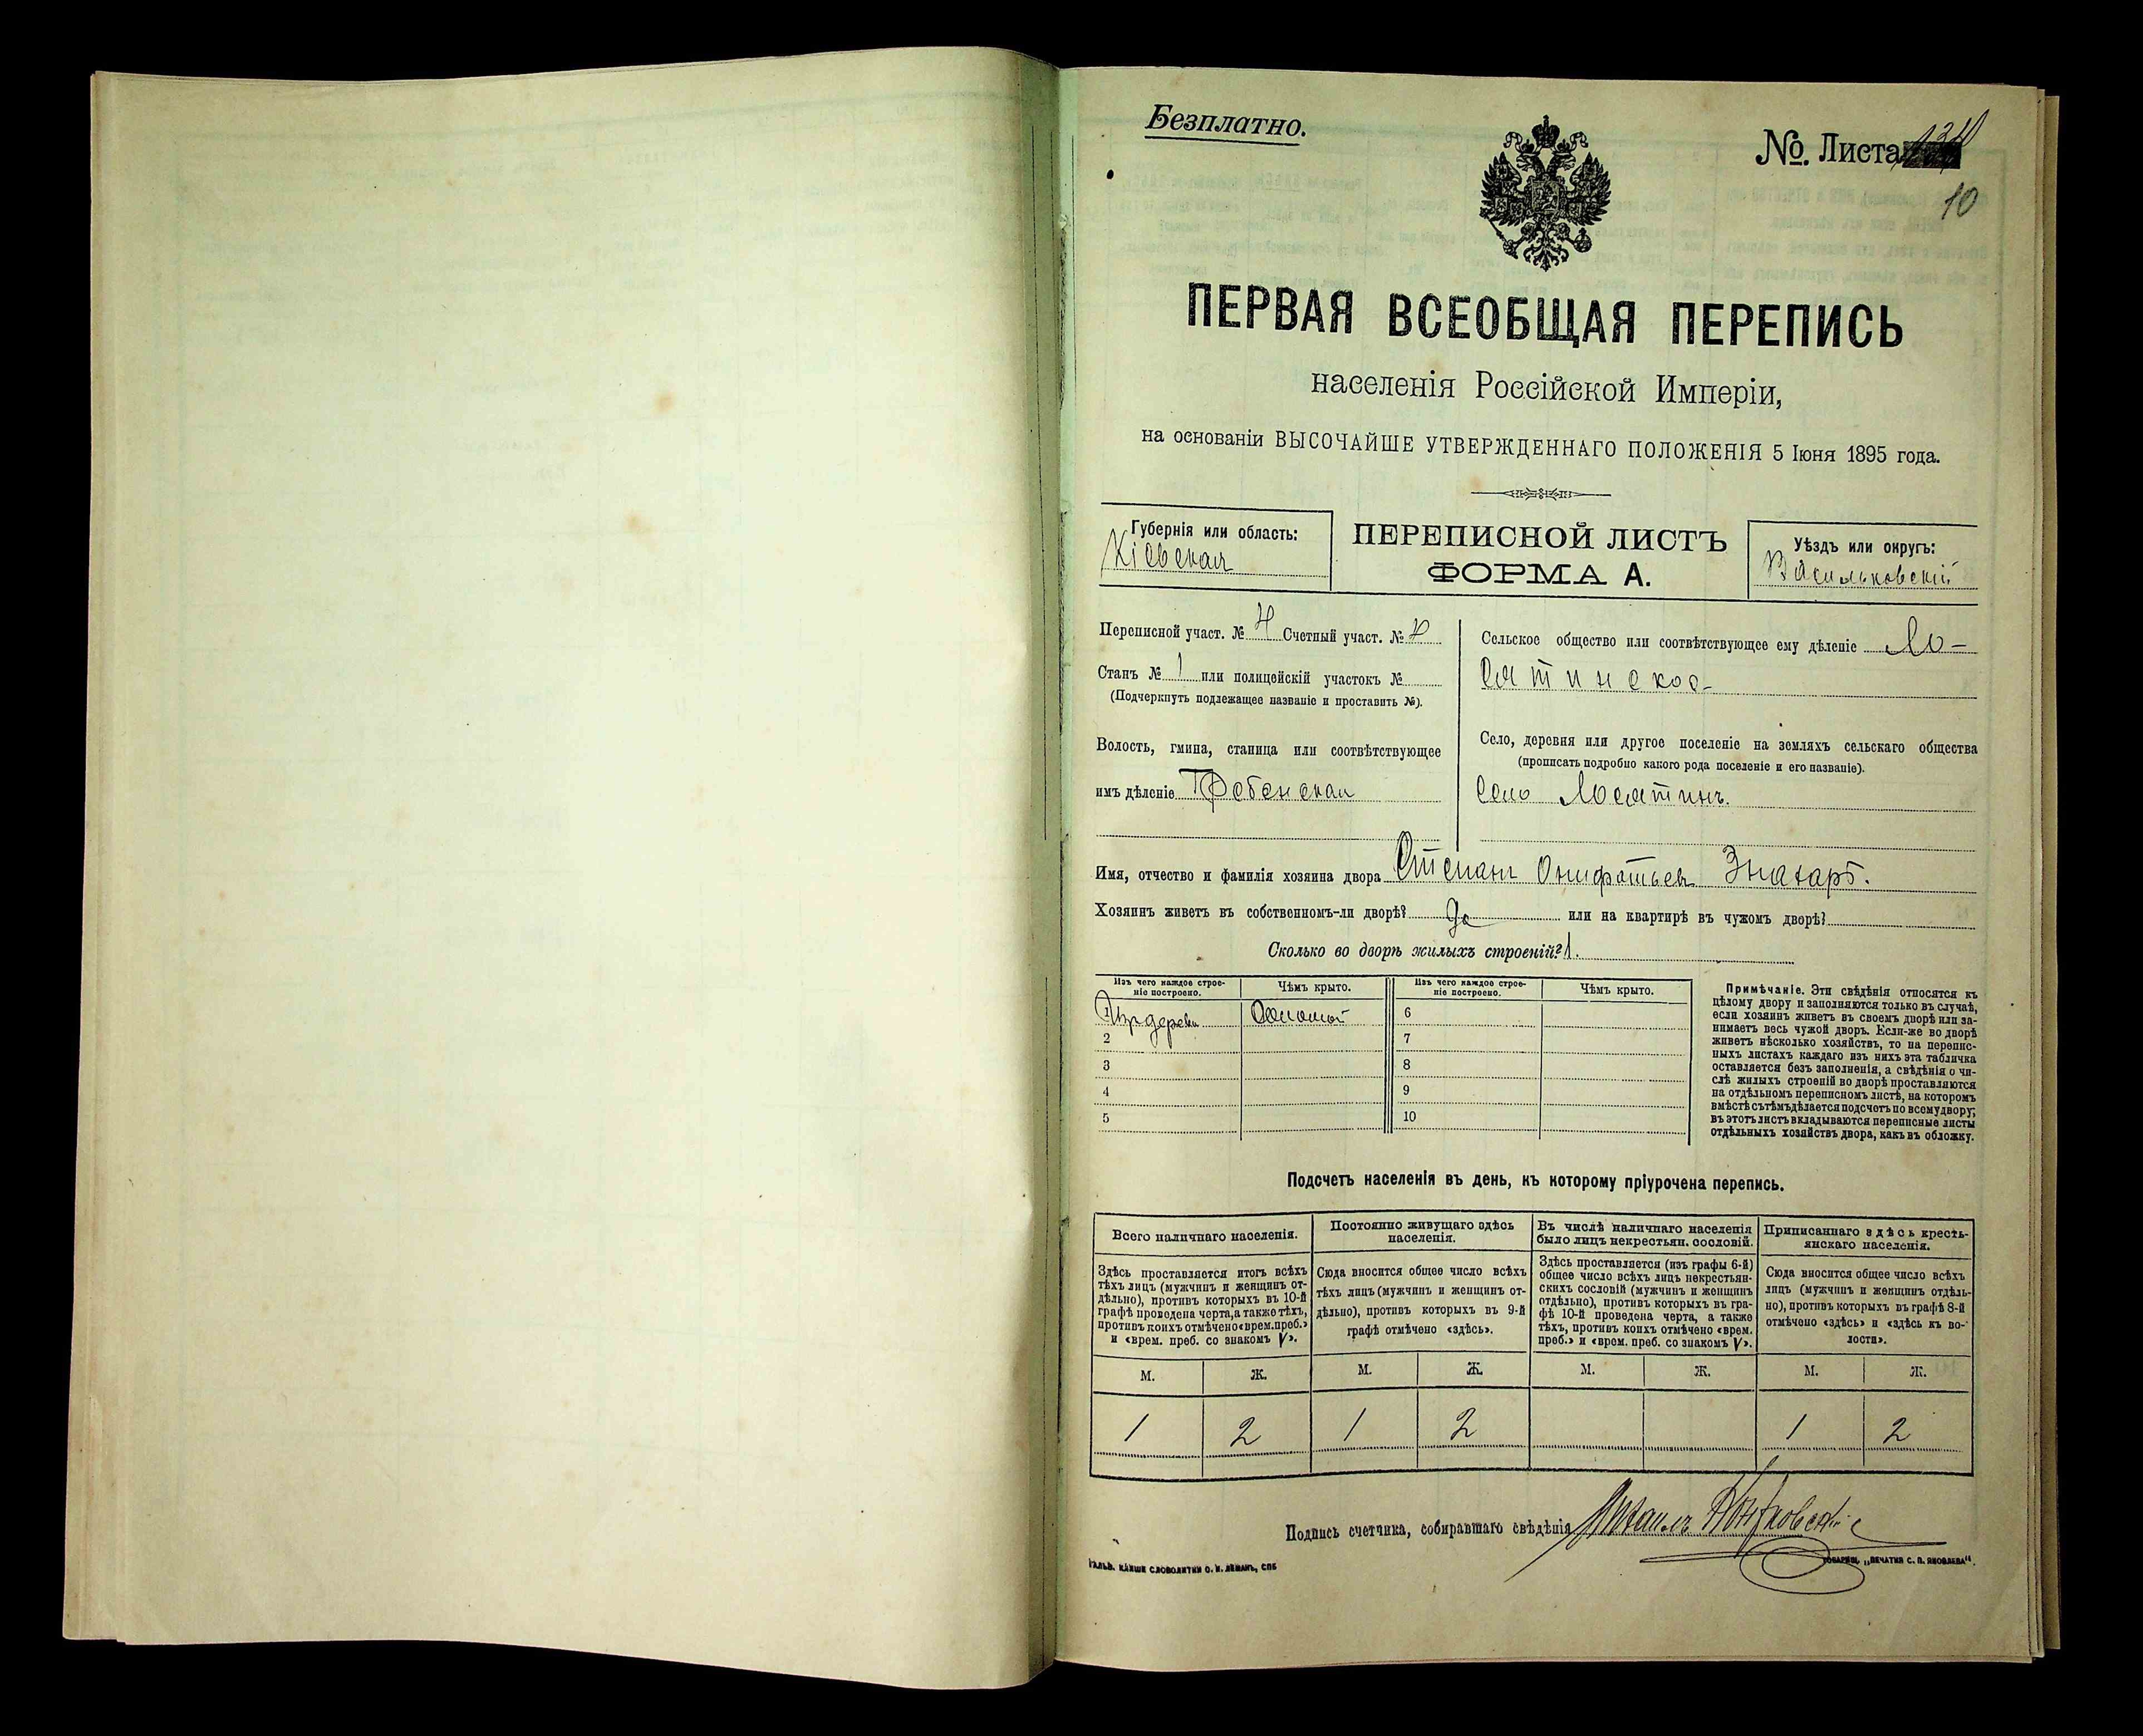 Безплатно.
№. Листа
10
ПЕРВАЯ ВСЕОБЩАЯ ПЕРЕПИСЬ
населенія Россійской Имперіи,
на основаніи ВЫСОЧАЙШЕ УТВЕРЖДЕННАГО ПОЛОЖЕНІЯ 5 Іюня 1895 года.
Губернія или область:
Кіевская
ПЕРЕПИСНОЙ ЛИСТЪ
ФОРМА А.
Уѣздъ или округъ:
Васильковскій
Переписной участ. № Счетный участ. №
Станъ № 1 или полицейскій участокъ №
(Подчеркнуть подлежащее названіе и проставить №).
Волость, гмина, станица или соотвѣтствующее
имъ дѣленіе
Сельское общество или соотвѣтствующее ему дѣленіе Ло-
сятинское
Село, деревня или другое поселеніе на земляхъ сельскаго общества
(прописать подробно какого рода поселеніе и его названіе).
село Лосятинъ.
Имя, отчество и фамилія хозяина двора Степанъ Онифатьевъ Знахарь.
Хозяинъ живетъ въ собственномъ-ли дворѣ? да или на квартирѣ въ чужомъ дворѣ?
Сколько во дворѣ жилыхъ строеній? 1.
Изъ чего каждое строе-
ніе построено.
Чѣмъ крыто.
Изъ чего каждое строе-
ніе построено.
Чѣмъ крыто.
дерева Соломой 6
2 7
3 8
4 9
5 10
Примѣчаніе. Эти свѣдѣнія относятся къ
цѣлому двору и заполняются только въ случаѣ,
если хозяинъ живетъ въ своемъ дворѣ или за-
нимаетъ весь чужой дворъ. Если-же во дворѣ
живетъ нѣсколько хозяйствъ, то на перепис-
ныхъ листахъ каждаго изъ нихъ эта табличка
оставляется безъ заполненія, а свѣдѣнія о чи-
слѣ жилыхъ строеній во дворѣ проставляются
на отдѣльномъ переписномъ листѣ, на которомъ
вмѣстѣ съ тѣмъ дѣлается подсчетъ по всему двору;
въ этотъ листъ вкладываются переписные листы
отдѣльныхъ хозяйствъ двора, какъ въ обложку.
Подсчетъ населенія въ день, къ которому пріурочена перепись.
Всего наличнаго населенія.
Здѣсь проставляется итогъ всѣхъ
тѣхъ лицъ (мужчинъ и женщинъ от-
дѣльно), противъ которыхъ въ 10-й
графѣ проведена черта, а также тѣхъ,
противъ коихъ отмѣчено «врем. преб.»
и «врем. преб. со знакомъ V».
Постоянно живущаго здѣсь
населенія.
Сюда вносится общее число всѣхъ
тѣхъ лицъ (мужчинъ и женщинъ от-
дѣльно), противъ которыхъ въ 9-й
графѣ отмѣчено «здѣсь».
Въ числѣ наличнаго населенія
было лицъ некрестьян. сословій.
Здѣсь проставляется (изъ графы 6-й)
общее число всѣхъ лицъ некрестьян-
скихъ сословій (мужчинъ и женщинъ
отдѣльно), противъ которыхъ въ гра-
фѣ 10-й проведена черта, а также
тѣхъ, противъ коихъ отмѣчено «врем.
преб.» и «врем. преб. со знакомъ V».
Приписаннаго здѣсь кресть-
янскаго населенія.
Сюда вносится общее число всѣхъ
лицъ (мужчинъ и женщинъ отдѣль-
но), противъ которыхъ въ графѣ 8-й
отмѣчено «здѣсь» и «здѣсь къ во-
лости».
М. Ж. М. Ж. М. Ж. М. Ж.
1 2 1 2 1 2
Подпись счетчика, собиравшаго свѣдѣнія Михаилъ
Гальв. клише словолитни О. И. Леманъ, СПБ
Товарищ. „Печатня С. П. Яковлева".